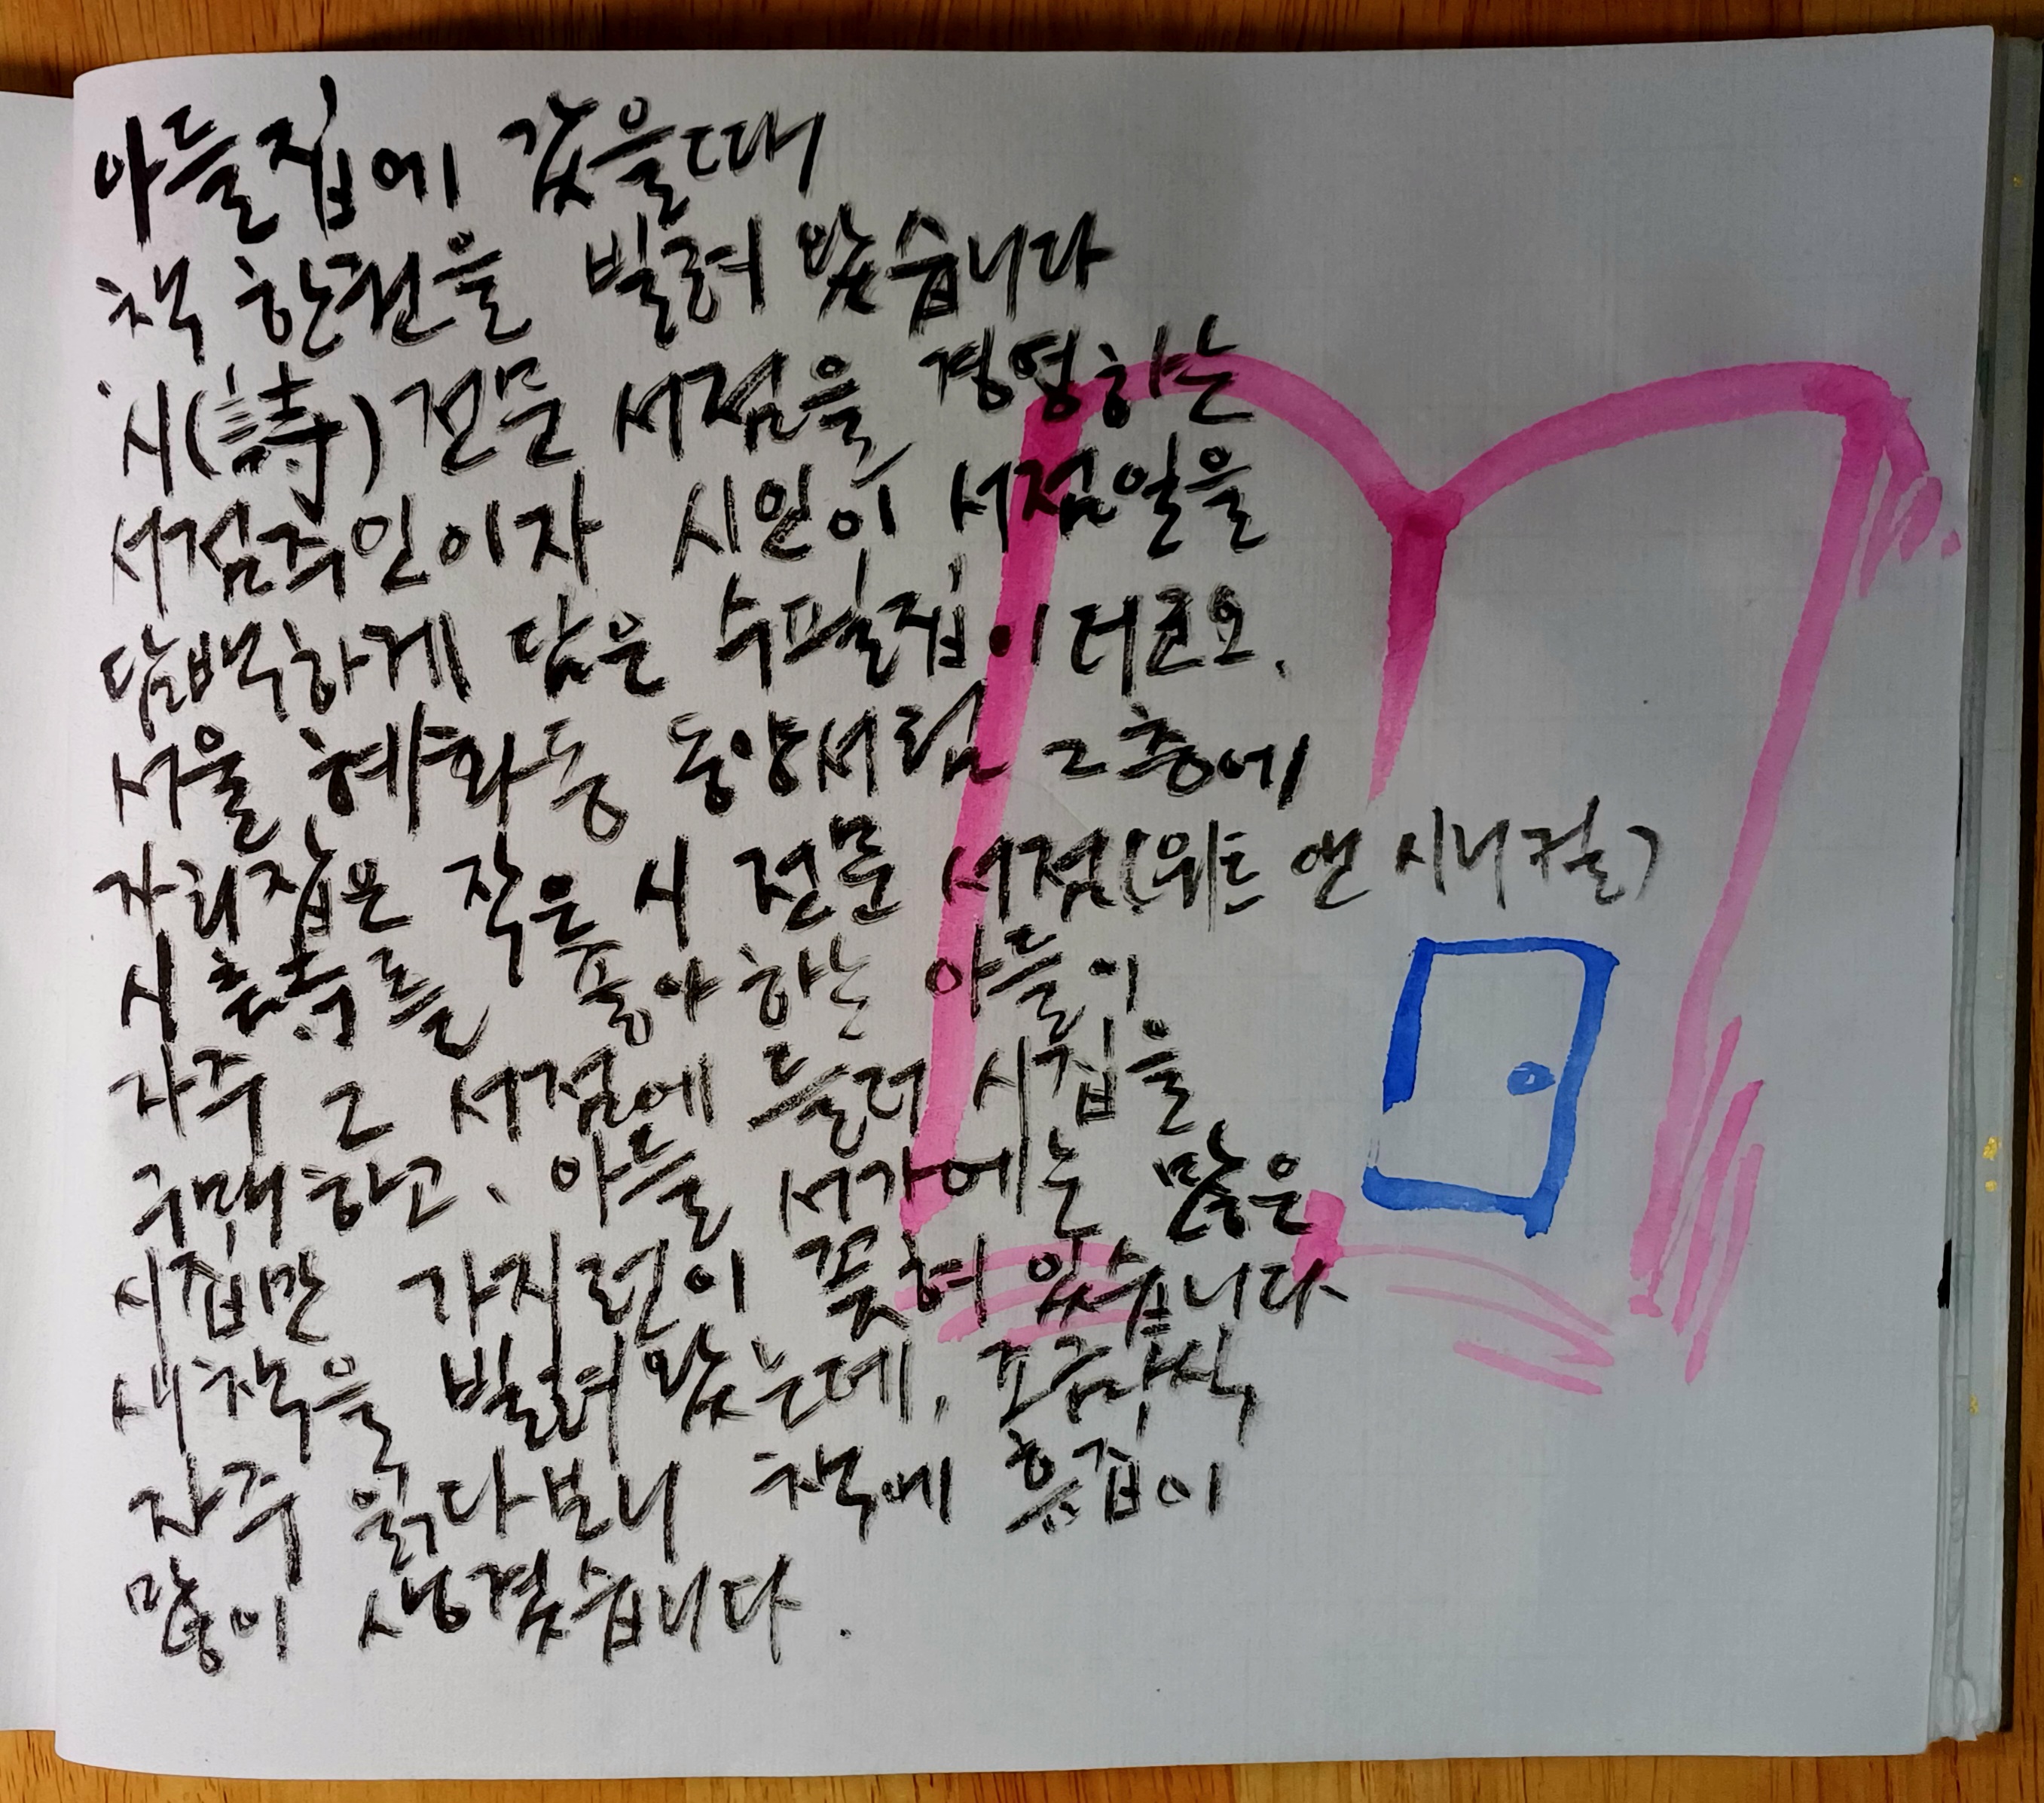 아들집에 갔을때
책 한권을 빌려 왔습니다
시(詩) 전문 서점을 경영하는
서점주인이자 시인이 서점일을
담백하게 담은 수필집이더군요.
서울 혜화동 동양서림 2층에
자리잡은 작은 시 전문 서점(위트 앤 시니컬)
시 詩를 좋아하는 아들이
자주 그 서점에 들러 시집을
구매하고, 아들 서가에는 많은
시집만 가지런이 꽂혀 있습니다
새책을 빌려왔는데, 조금씩
자주 읽다보니 책에 흠집이
많이 생겼습니다.